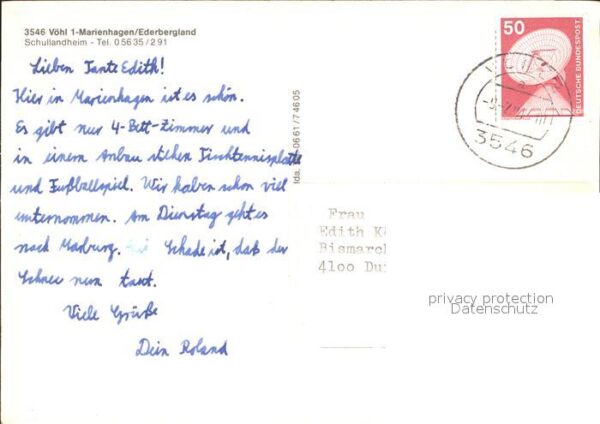 3546 Vöhl 1-Marienhagen/Ederbergland
Schullandheim - Tel. 0 56 35 / 2 91
Lieben Tante Edith!
Hier in Marienhagen ist es schön.
Es gibt nur 4-Bett-Zimmer und
in einem Anbau stehen Tischtennisplatte
und Fußballspiel. Wir haben schon viel
unternommen. Am Dienstag geht es
nach Marburg. Schade ist, daß der
Schnee nun taut.
Viele Grüße
Dein Roland
lda, 0661/74605
50
DEUTSCHE BUNDESPOST
3546
Frau
Edith K
Bismarc
4100 Du
privacy protection
Datenschutz